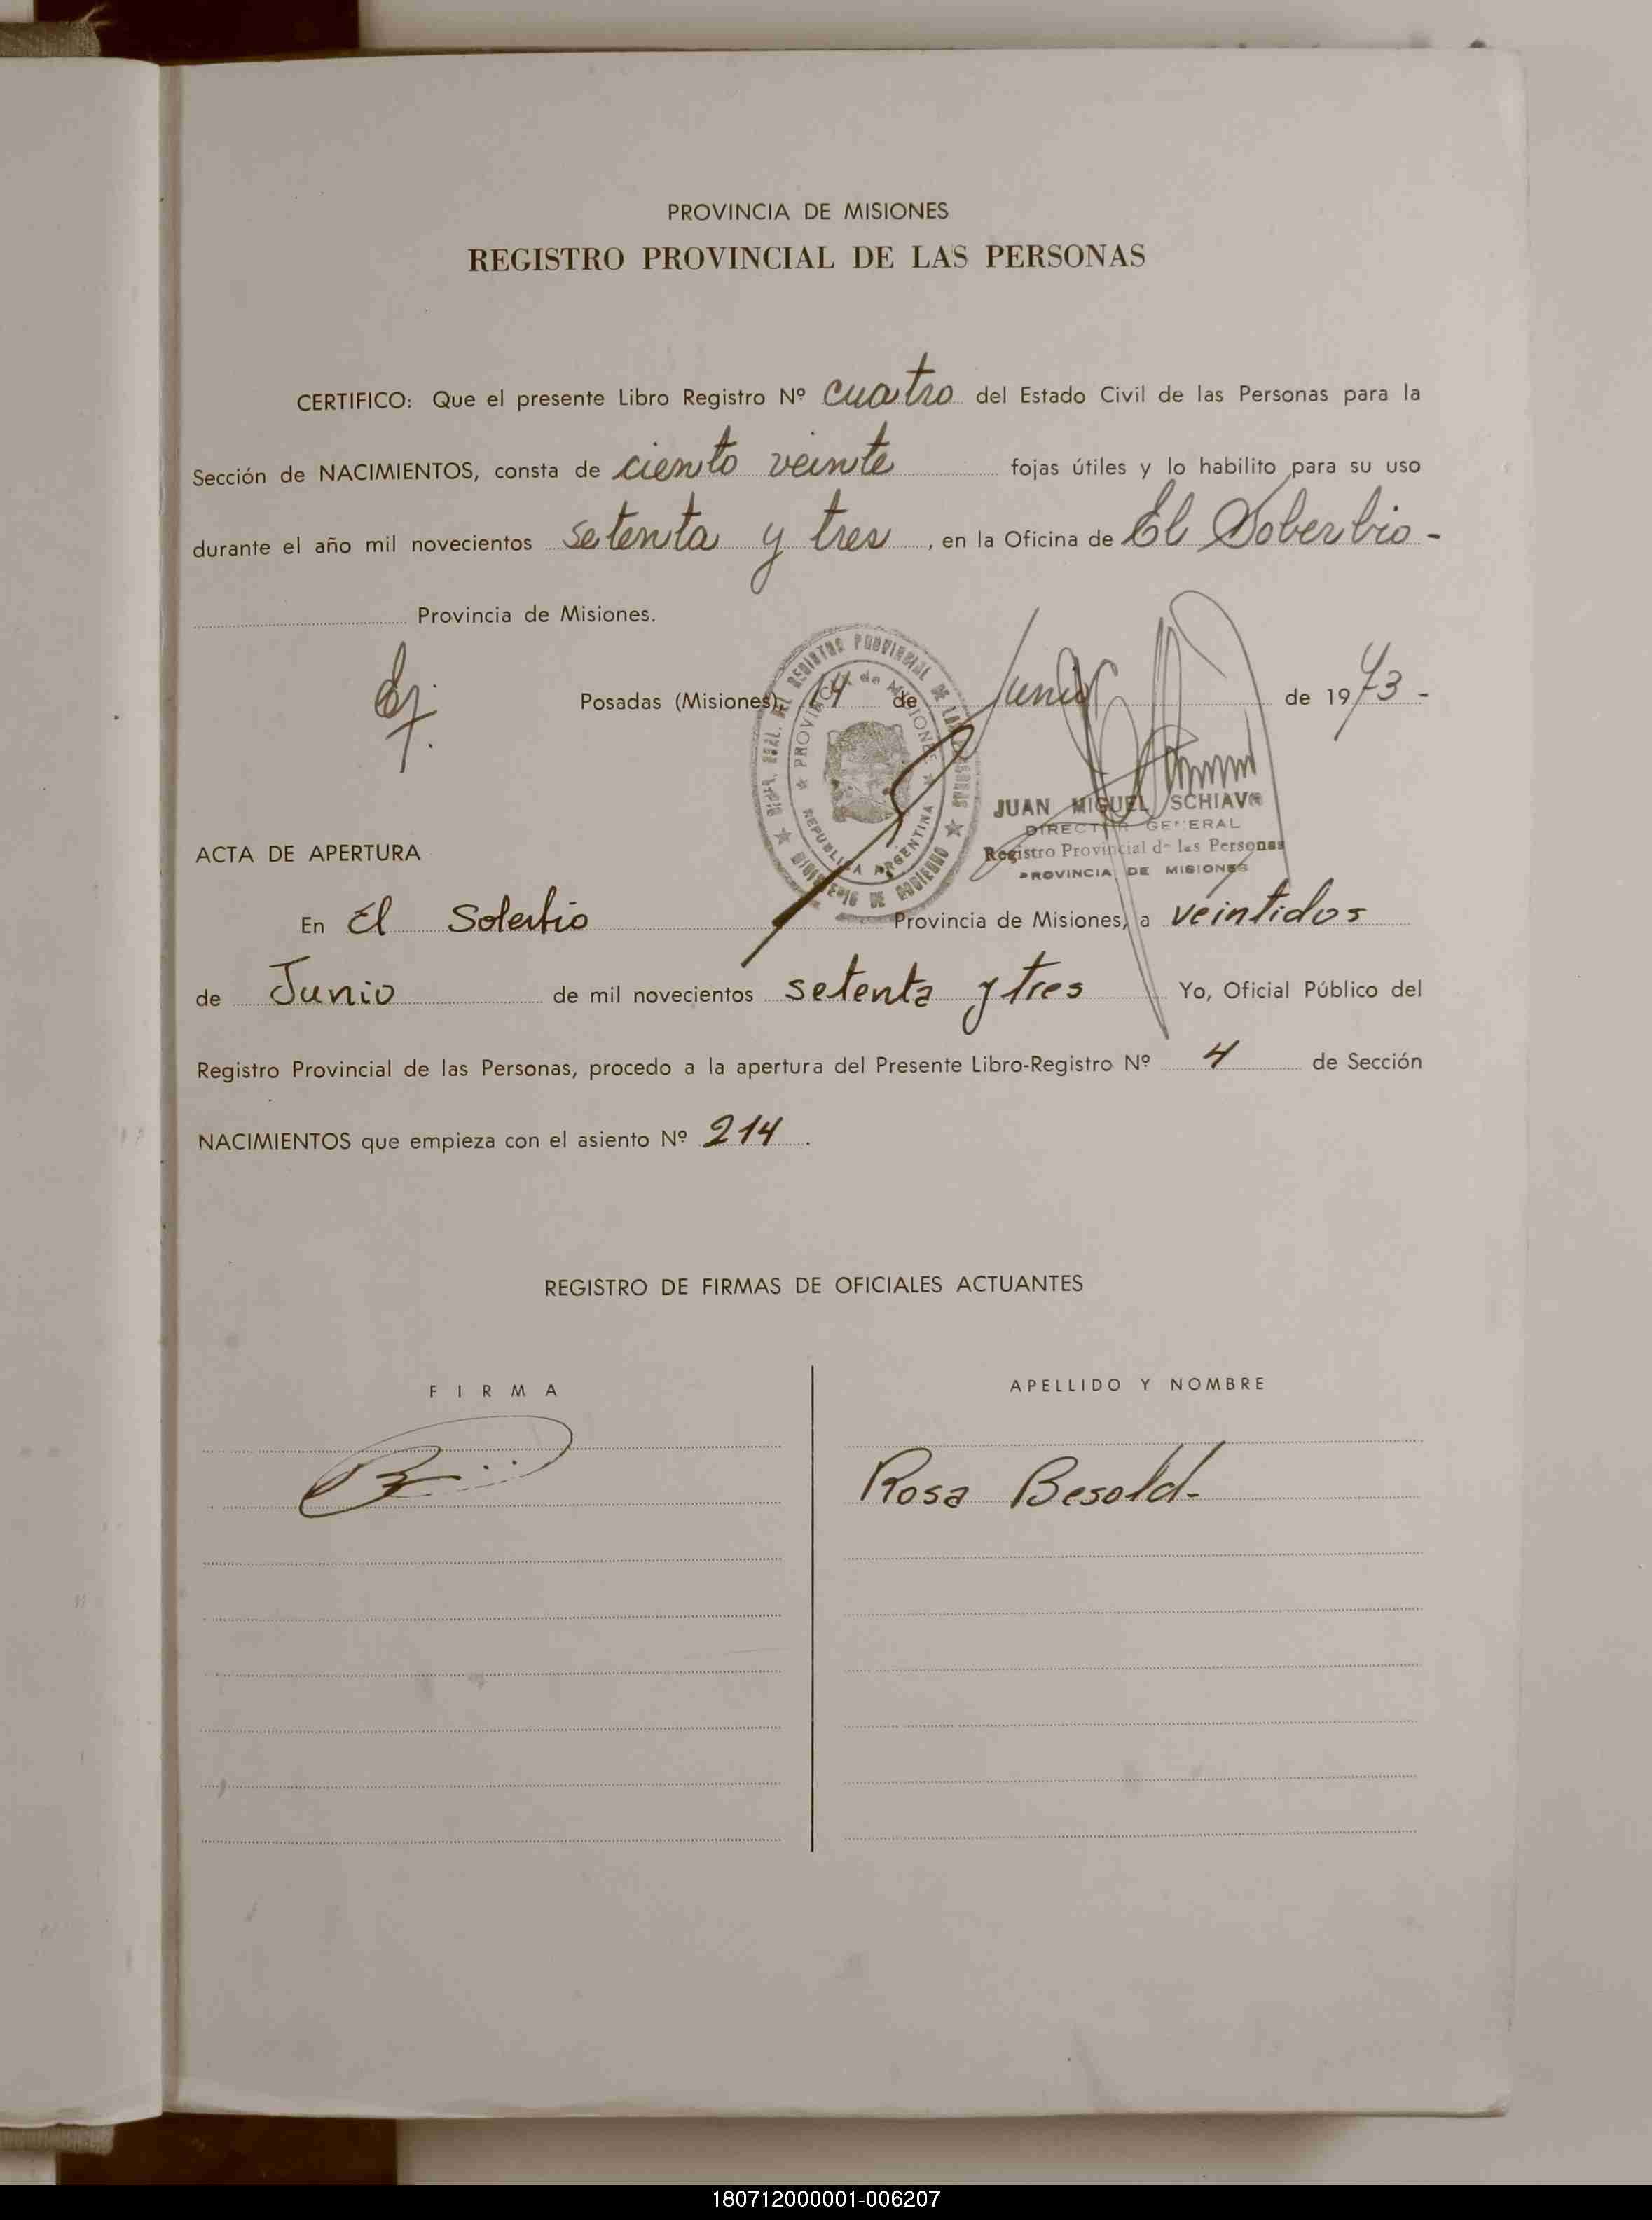 PROVINCIA DE MISIONES
REGISTRO PROVINCIAL DE LAS PERSONAS
CERTIFICO: Que el presente Libro Registro Nº cuatro del Estado Civil de las Personas para la
Sección de NACIMIENTOS, consta de ciento veinte fojas útiles y lo habilito para su uso
durante el año mil novecientos setenta y tres, en la Oficina de El Soberbio -
Provincia de Misiones.
Posadas (Misiones), 14 de Junio de 1973 -
REGISTRO PROVINCIAL DE LAS PERSONAS
MINISTERIO DE GOBIERNO
PROVINCIA de MISIONES
REPUBLICA ARGENTINA
JUAN MIGUEL SCHIAVO
DIRECTOR GENERAL
Registro Provincial de las Personas
PROVINCIA DE MISIONES
ACTA DE APERTURA
En El Soberbio Provincia de Misiones, a veintidos
de Junio de mil novecientos setenta y tres Yo, Oficial Público del
Registro Provincial de las Personas, procedo a la apertura del Presente Libro-Registro Nº 4 de Sección
NACIMIENTOS que empieza con el asiento Nº 214.
REGISTRO DE FIRMAS DE OFICIALES ACTUANTES
FIRMA APELLIDO Y NOMBRE
Rosa Besold-
180712000001-006207